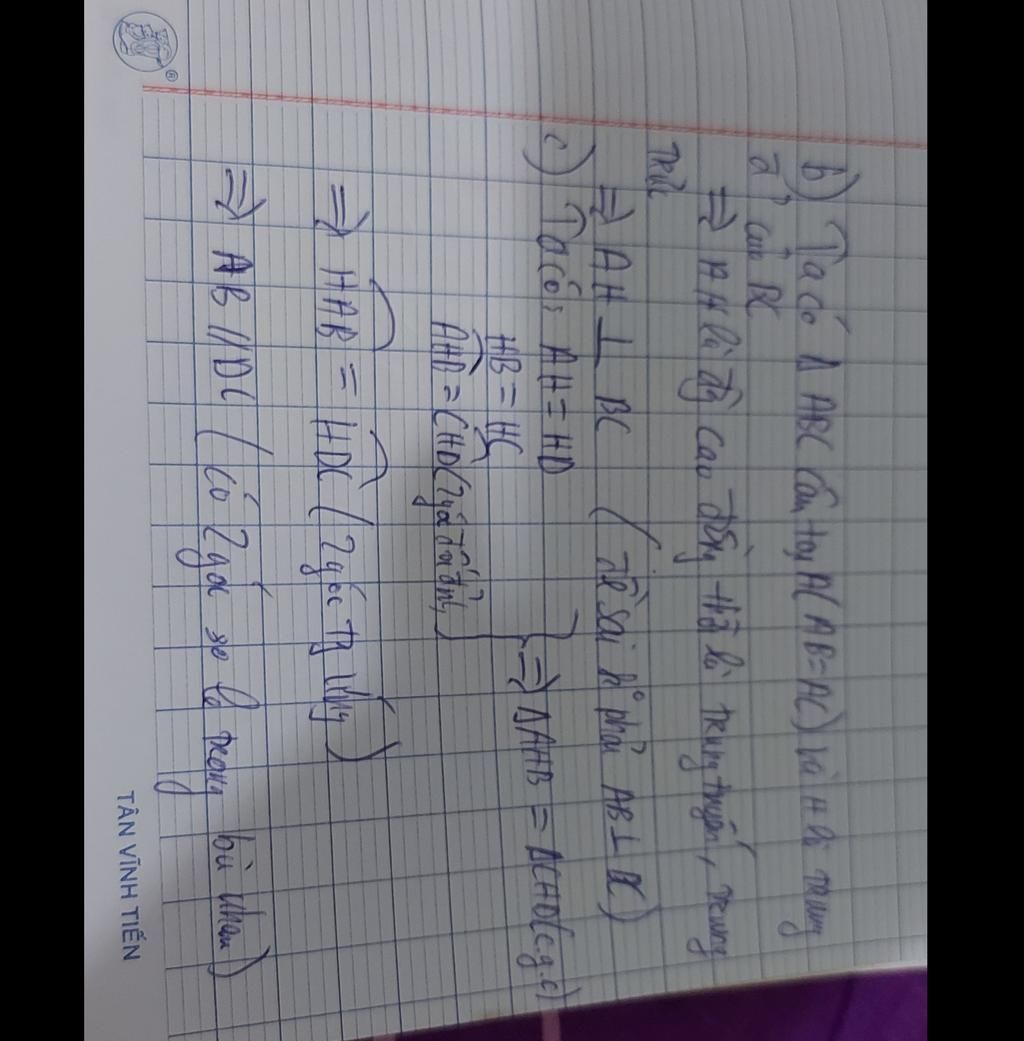 b) Ta có Δ ABC cân tại A (AB=AC) và H là trung
đ' của BC
⇒ AH là đg cao đồng thời là trung tuyến, trung
trực
⇒ AH ⊥ BC (đề sai k° phải AB ⊥ BC)
c) Ta có: AH = HD
HB = HC
AHB = CHD (2 góc đối đỉnh) } ⇒ ΔAHB = ΔCHD (c.g.c)
⇒ HAB = HDC (2 góc tg ứng)
⇒ AB // DC (có 2 góc so le trong bù nhau)
TÂN VĨNH TIẾN
®